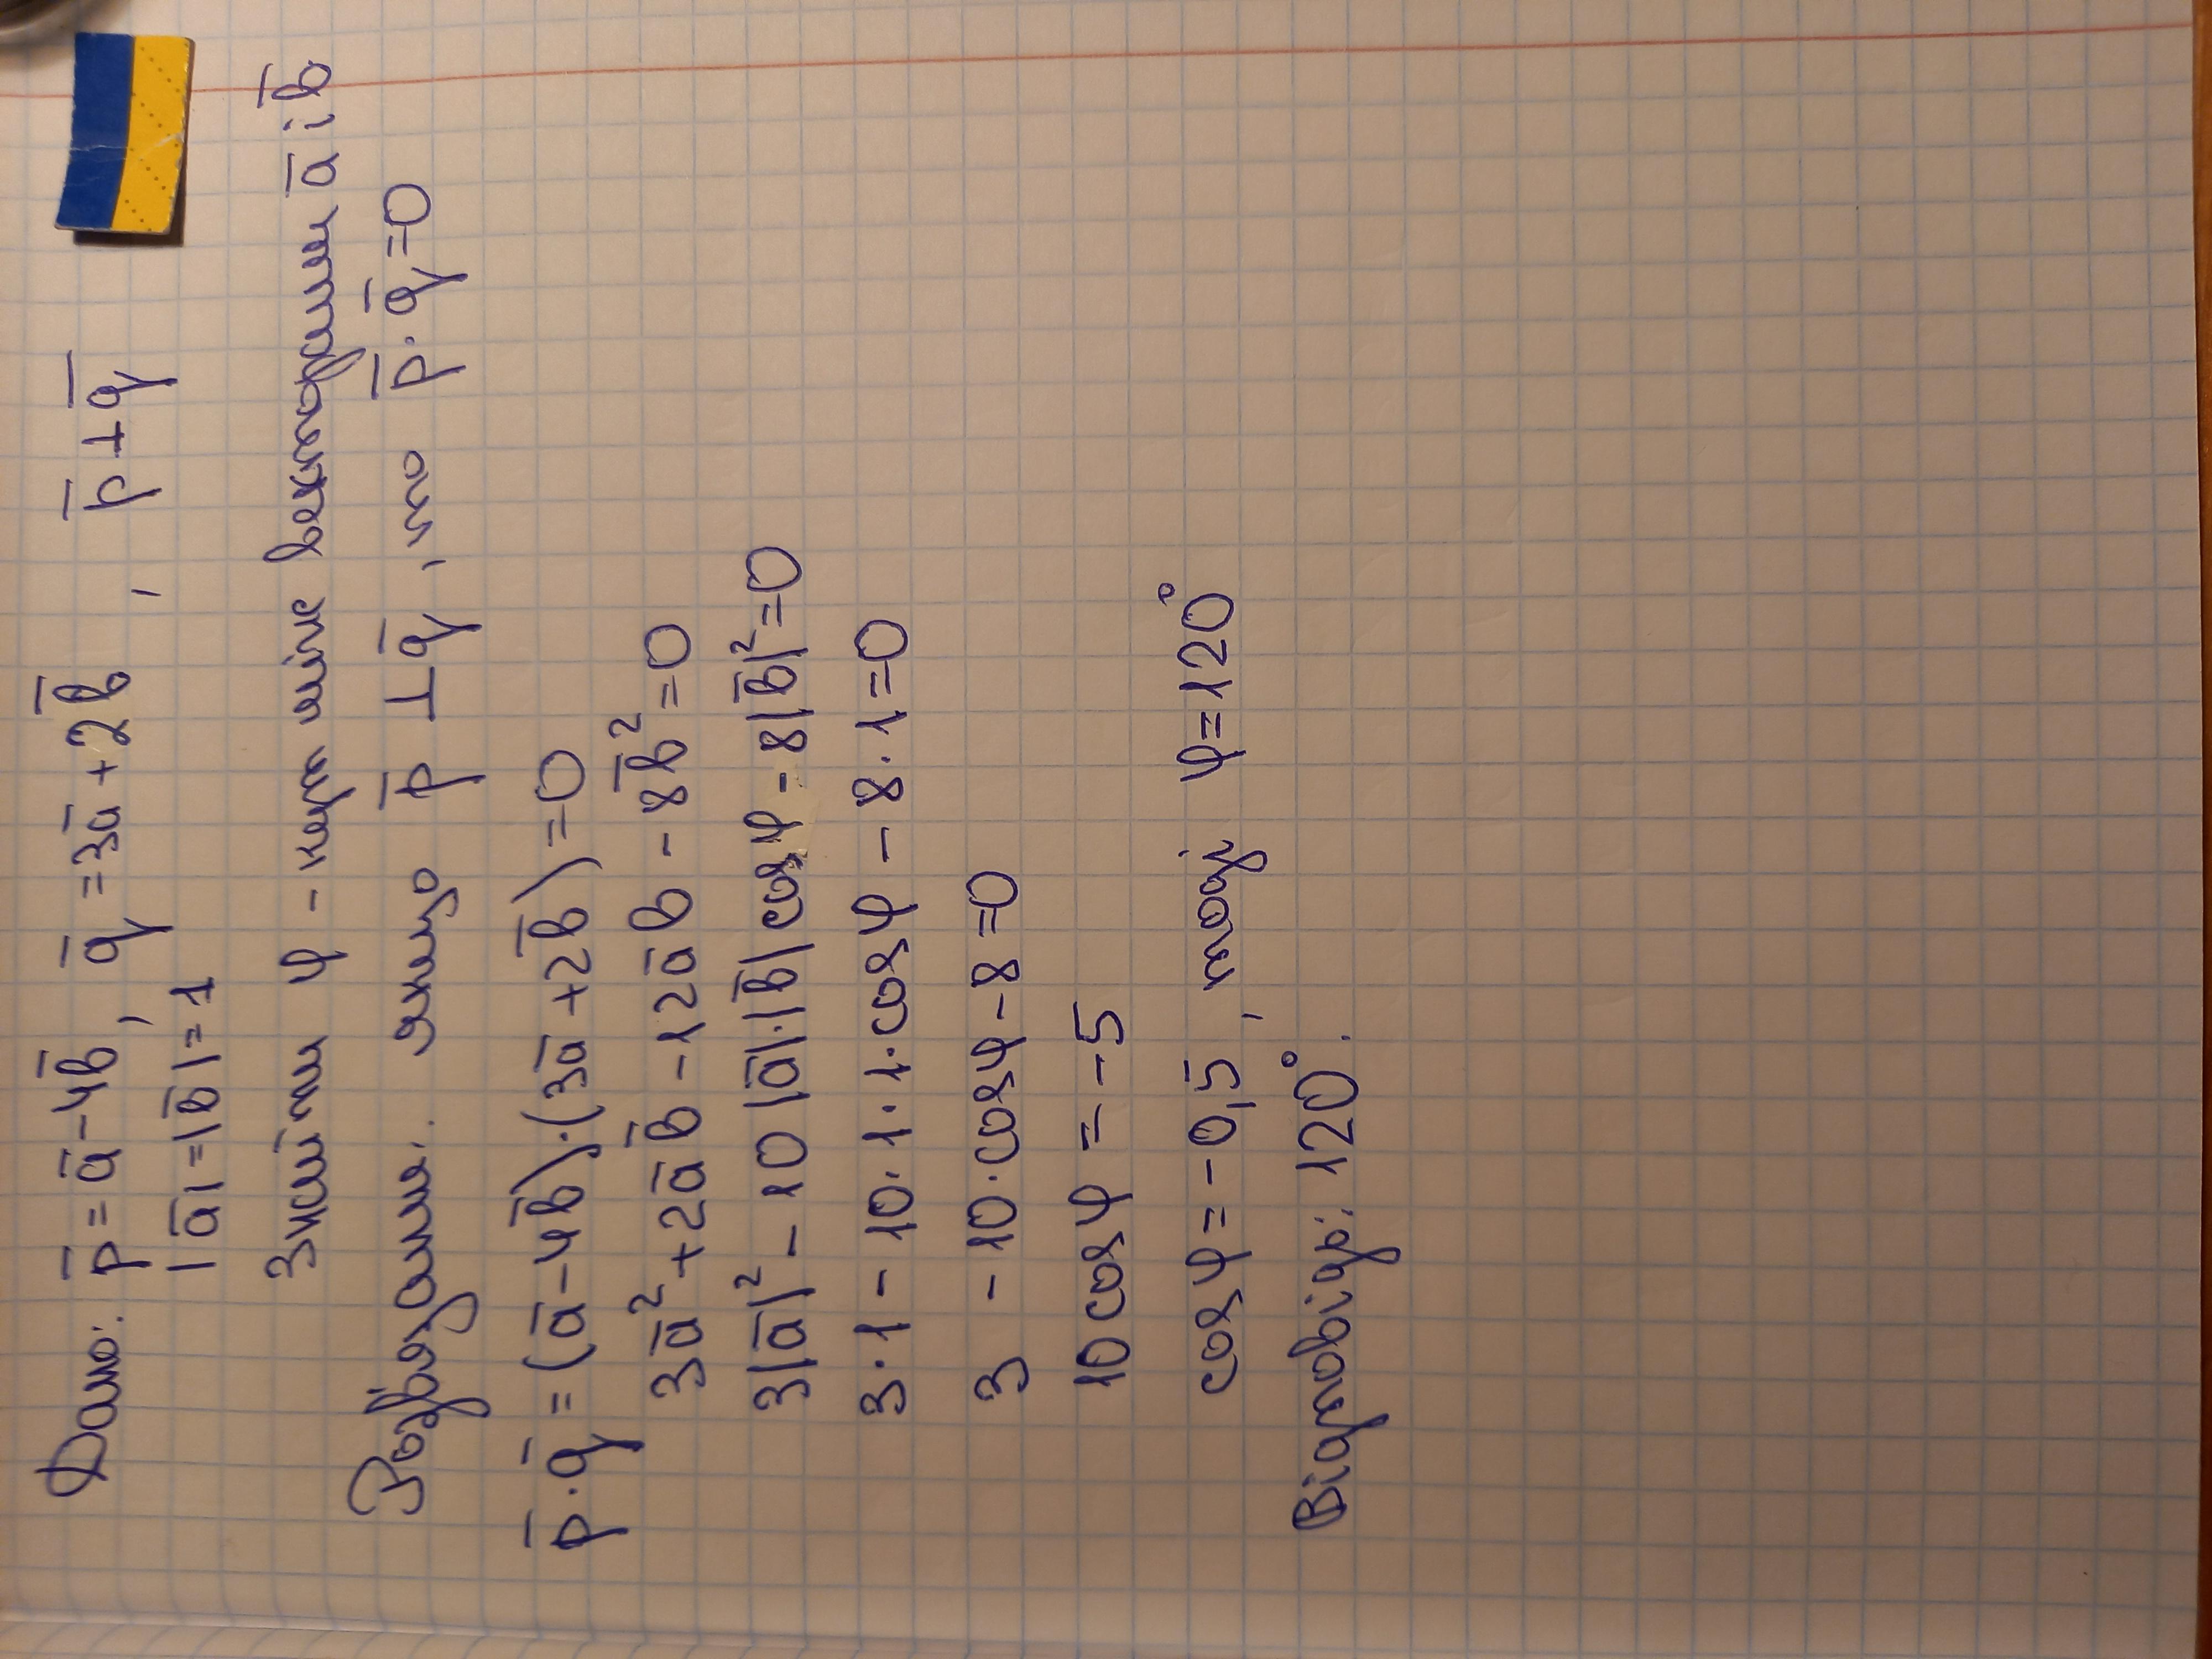 Дано: p̅ = a̅ - 4b̅, q̅ = 3a̅ + 2b̅, p̅ ⊥ q̅
|a̅| = |b̅| = 1
Знайти φ - кут між векторами a̅ і b̅
Розв'язання: якщо p̅ ⊥ q̅, то p̅ · q̅ = 0
p̅ · q̅ = (a̅ - 4b̅) · (3a̅ + 2b̅) = 0
3a̅² + 2a̅b̅ - 12a̅b - 8b̅² = 0
3|a̅|² - 10|a̅|·|b̅|cosφ - 8|b̅|² = 0
3·1 - 10·1·1·cosφ - 8·1 = 0
3 - 10·cosφ - 8 = 0
10cosφ = -5
cosφ = -0,5, тоді φ = 120°
Відповідь: 120°.